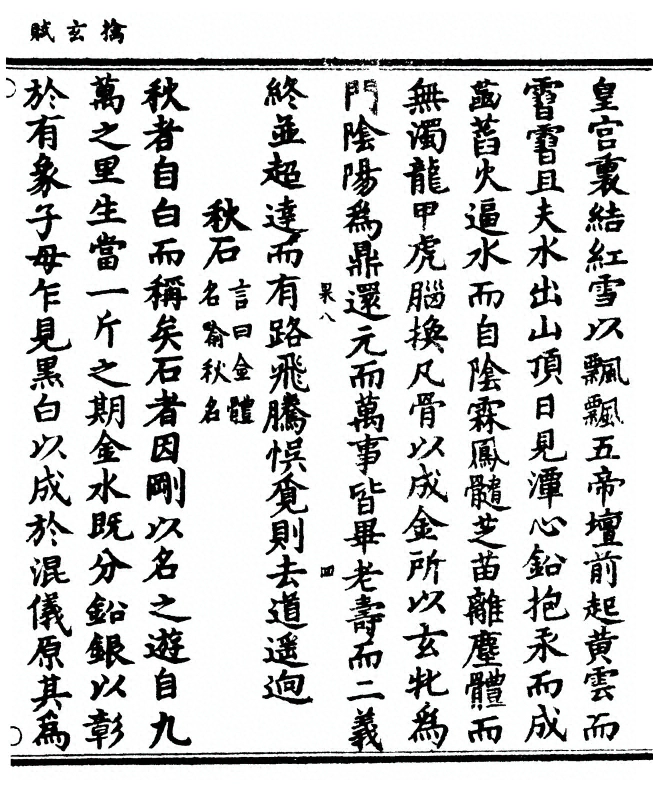 擒玄賦
皇宮裏結紅雪以飄飄五帝壇前起黃雲而
霫霫且夫水出山頂日見潭心鉛抱汞而成
菡萏火逼水而自陰霖鳳髓芝苗離塵體而
無濁龍甲虎腦換凡骨以成金所以玄牝爲
門陰陽爲鼎還元而萬事皆畢老壽而二義
果八 四
終並超達而有路飛騰悞覔則去道遥逈
秋石
言曰金體
名喻秋名
秋者自白而稱矣石者因剛以名之遊自九
萬之里生當一斤之期金水既分鉛銀以彰
於有象子母乍見黑白以成於混儀原其爲